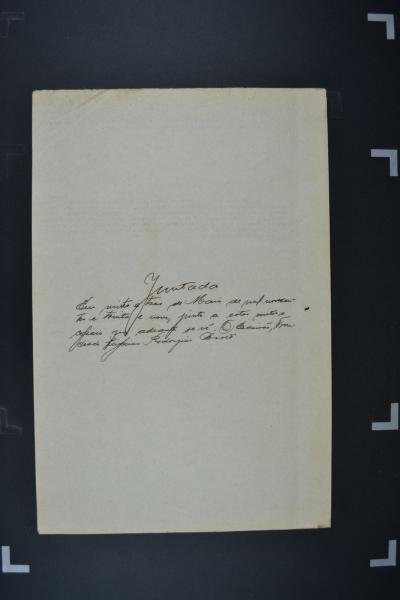 Juntada
Em vinte e tres de Maio de mil novecen
tos e trinta e um, junto a estes autos o
que adiante se vê. O Escrivão,
Rodrigues